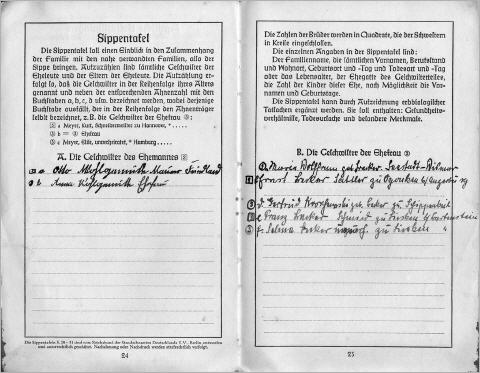 Sippentafel
Die Sippentafel soll einen Einblick in den Zusammenhang
der Familie mit den nahe verwandten Familien, also der
Sippe bringen. Aufzuzählen sind sämtliche Geschwister der
Eheleute und der Eltern der Eheleute. Die Aufzählung er-
folgt so, daß die Geschwister in der Reihenfolge ihres Alters
genannt und neben der entsprechenden Ahnenzahl mit den
Buchstaben a, b, c, d usw. bezeichnet werden, wobei derjenige
Buchstabe ausfällt, der in der Reihenfolge den Ahnenträger
selbst bezeichnet, z. B. die Geschwister der Ehefrau ③:
a Meyer, Kurt, Schneidermeister zu Hannover, * . . . . .
b = ③ Ehefrau
c Meyer, Else, unverheiratet, * Hamburg . . . . .
A. Die Geschwister des Ehemannes 2
a Otto
b Anna Ehefrau
Die Sippentafeln S. 24 – 31 sind vom Reichsbund der Standesbeamten Deutschlands E. V., Berlin entworfen
und unterrechtlich geschützt. Nachahmung oder Nachdruck werden strafrechtlich verfolgt.
24
Die Zahlen der Brüder werden in Quadrate, die der Schwestern
in Kreise eingeschlossen.
Die einzelnen Angaben in der Sippentafel sind:
Der Familienname, die sämtlichen Vornamen, Berufsstand
und Wohnort, Geburtsort und -Tag und Todesort und -Tag
oder das Lebensalter, der Ehegatte des Geschwisterteiles,
die Zahl der Kinder dieser Ehe, nach Möglichkeit die Vor-
namen und Geburtstage.
Die Sippentafel kann durch Aufzeichnung erbbiologischer
Tatsachen ergänzt werden. Sie soll enthalten: Gesundheits-
verhältnisse, Todesursache und besondere Merkmale.
B. Die Geschwister der Ehefrau ③
Maria geb.
Ernst Becker Sattler zu
d. Gertrud geb. Becker zu Schippenbeil
e Franz Becker Schmied zu Bartenstein
f. Selma Becker zu
25